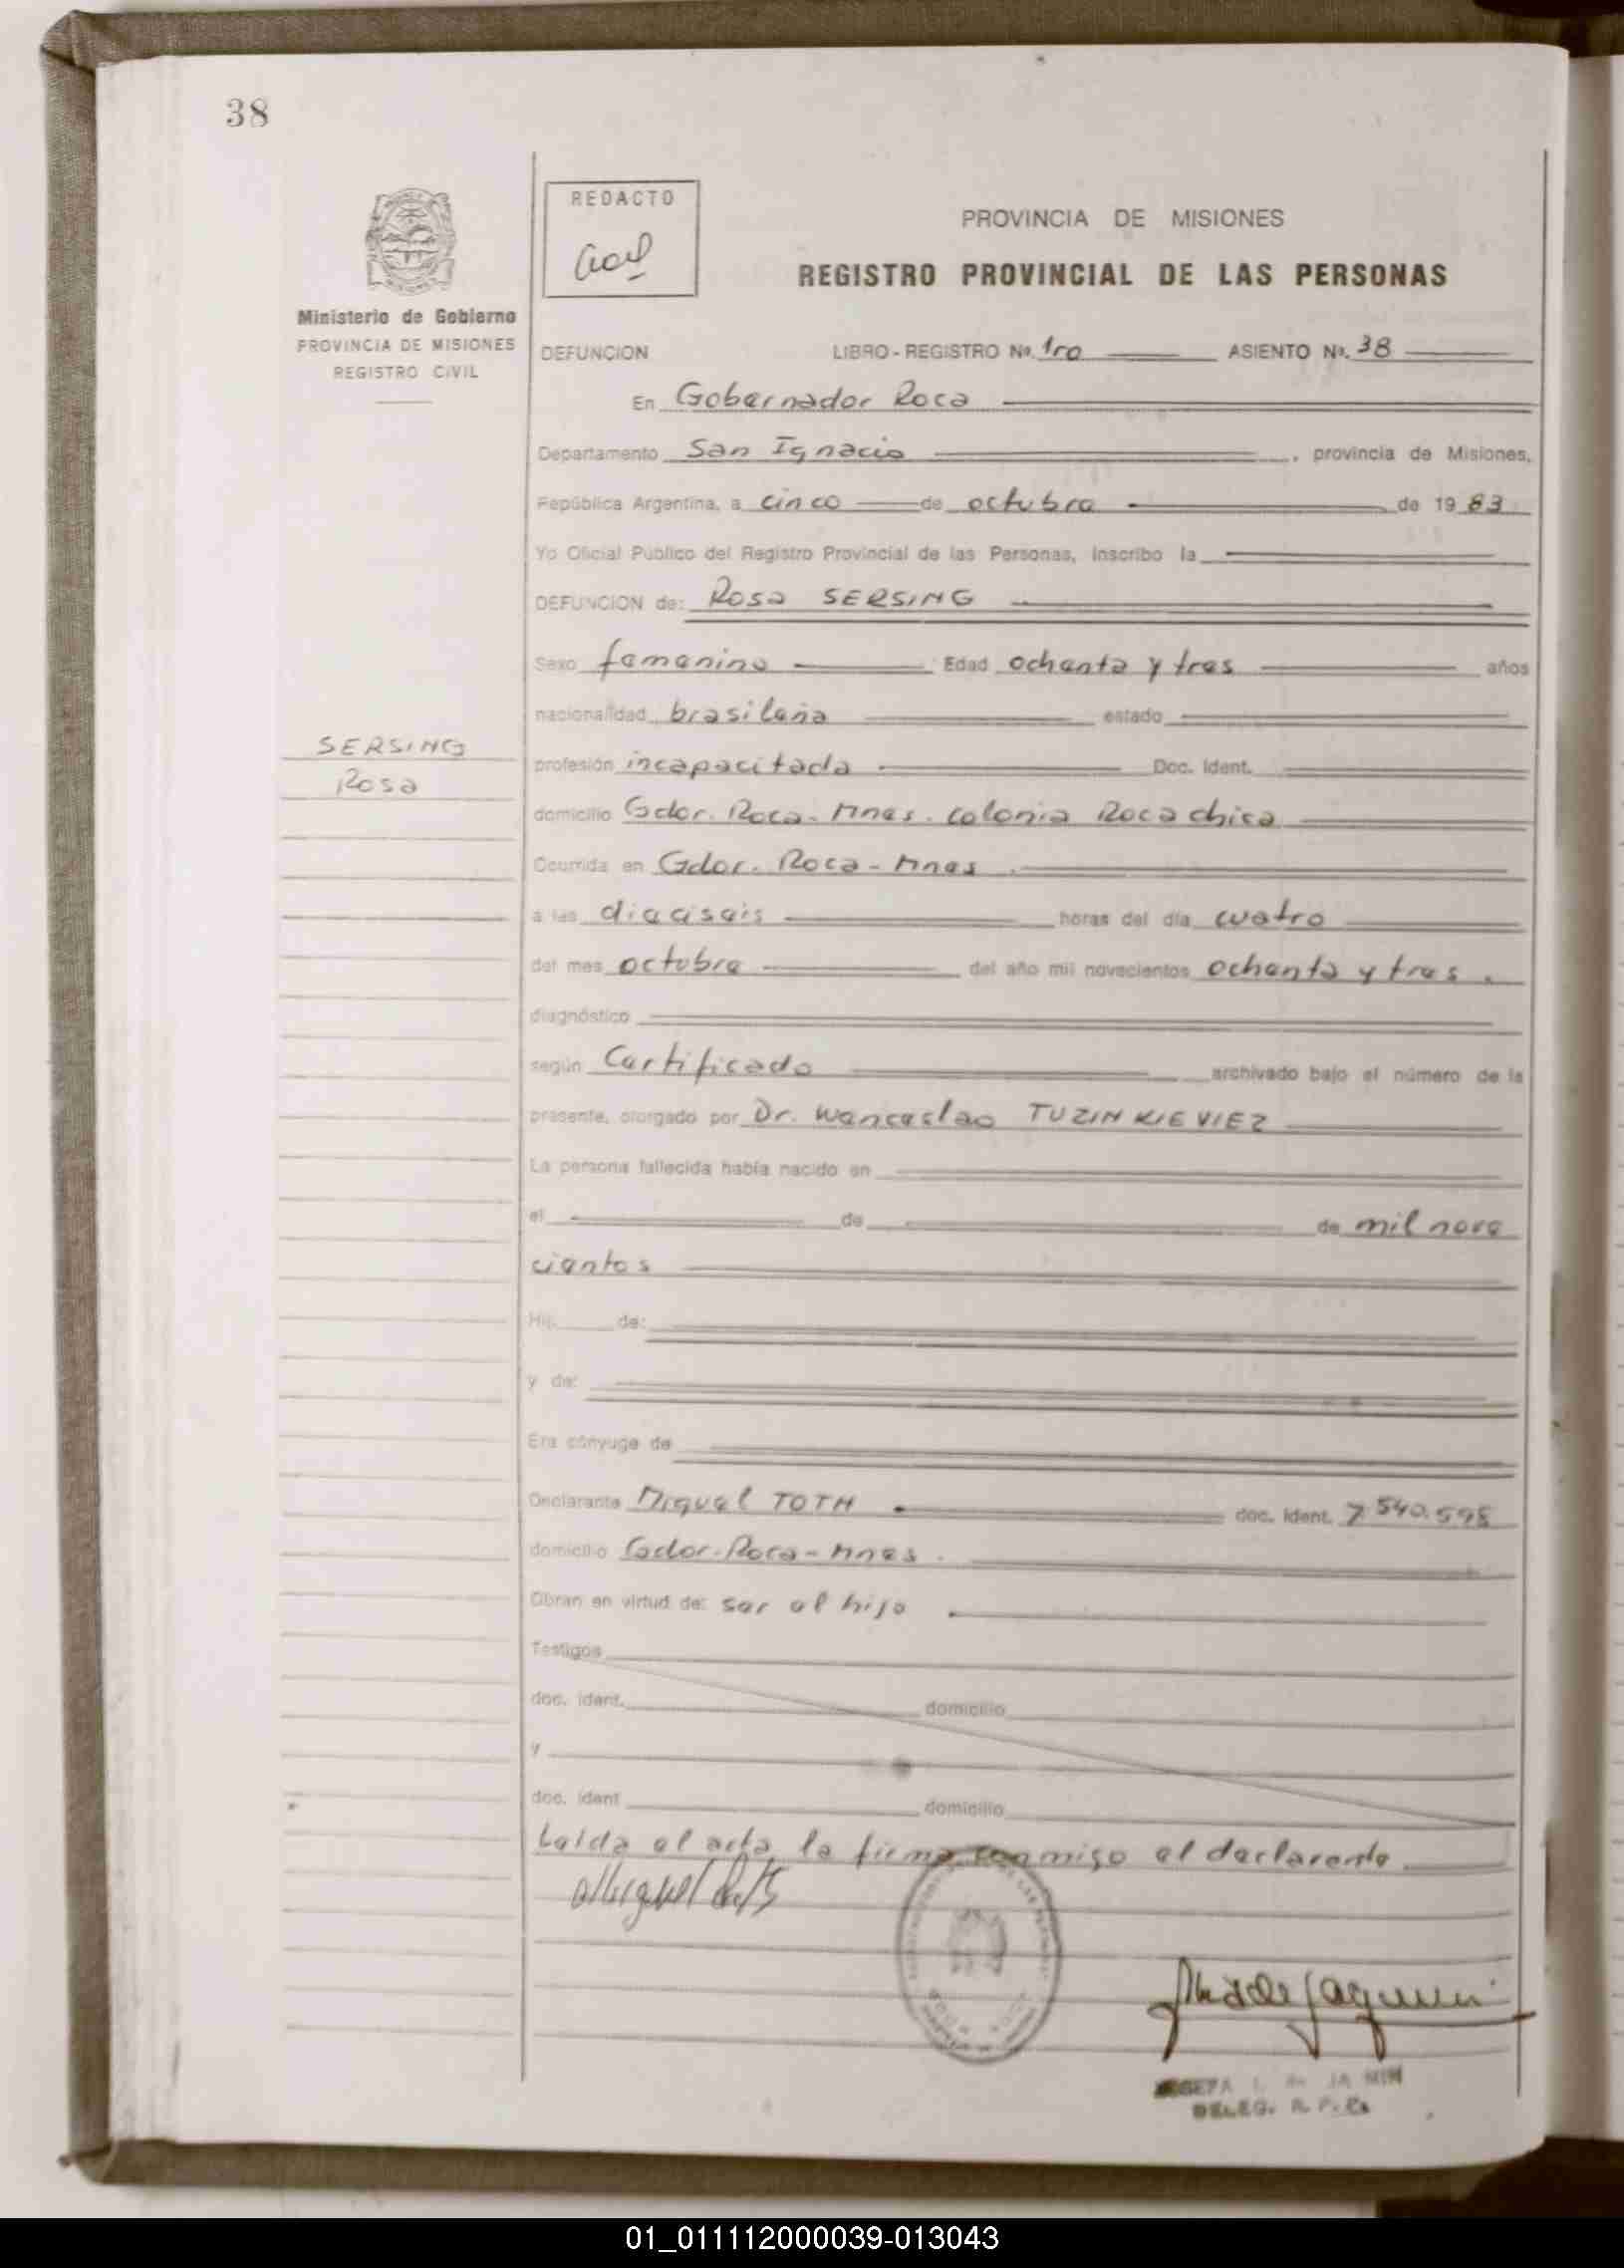 38
REDACTO
PROVINCIA DE MISIONES
REGISTRO PROVINCIAL DE LAS PERSONAS
Ministerio de Gobierno
PROVINCIA DE MISIONES
REGISTRO CIVIL
DEFUNCION LIBRO - REGISTRO No. 1ro ASIENTO No. 38
En Gobernador Roca
Departamento San Ignacio, provincia de Misiones,
República Argentina, a cinco de octubre de 1983
Yo Oficial Público del Registro Provincial de las Personas, inscribo la
DEFUNCION de: Rosa SERSING
Sexo femenino Edad ochenta y tres años
nacionalidad brasileña estado
SERSING
Rosa
profesión incapacitada Doc. Ident.
domicilio Gdor. Roca - Mnes. Colonia Roca chica
Ocurrida en Gdor. Roca - Mnes
a las dieciseis horas del día cuatro
del mes octubre del año mil novecientos ochenta y tres.
diagnóstico
según Certificado archivado bajo el número de la
presente, otorgado por Dr. Wenceslao TUZINKIEVIEZ
La persona fallecida había nacido en
el de de mil nove
cientos
Hij. de:
y de:
Era cónyuge de
Declarante Miguel TOTH doc. ident. 7.540.595
domicilio Gdor. Roca - Mnes.
Obran en virtud de: ser el hijo
Testigos
doc. ident. domicilio
y
doc. ident domicilio
Leida el acta, la firma conmigo el declarante
DELEG. R. P. P.
01_011112000039-013043